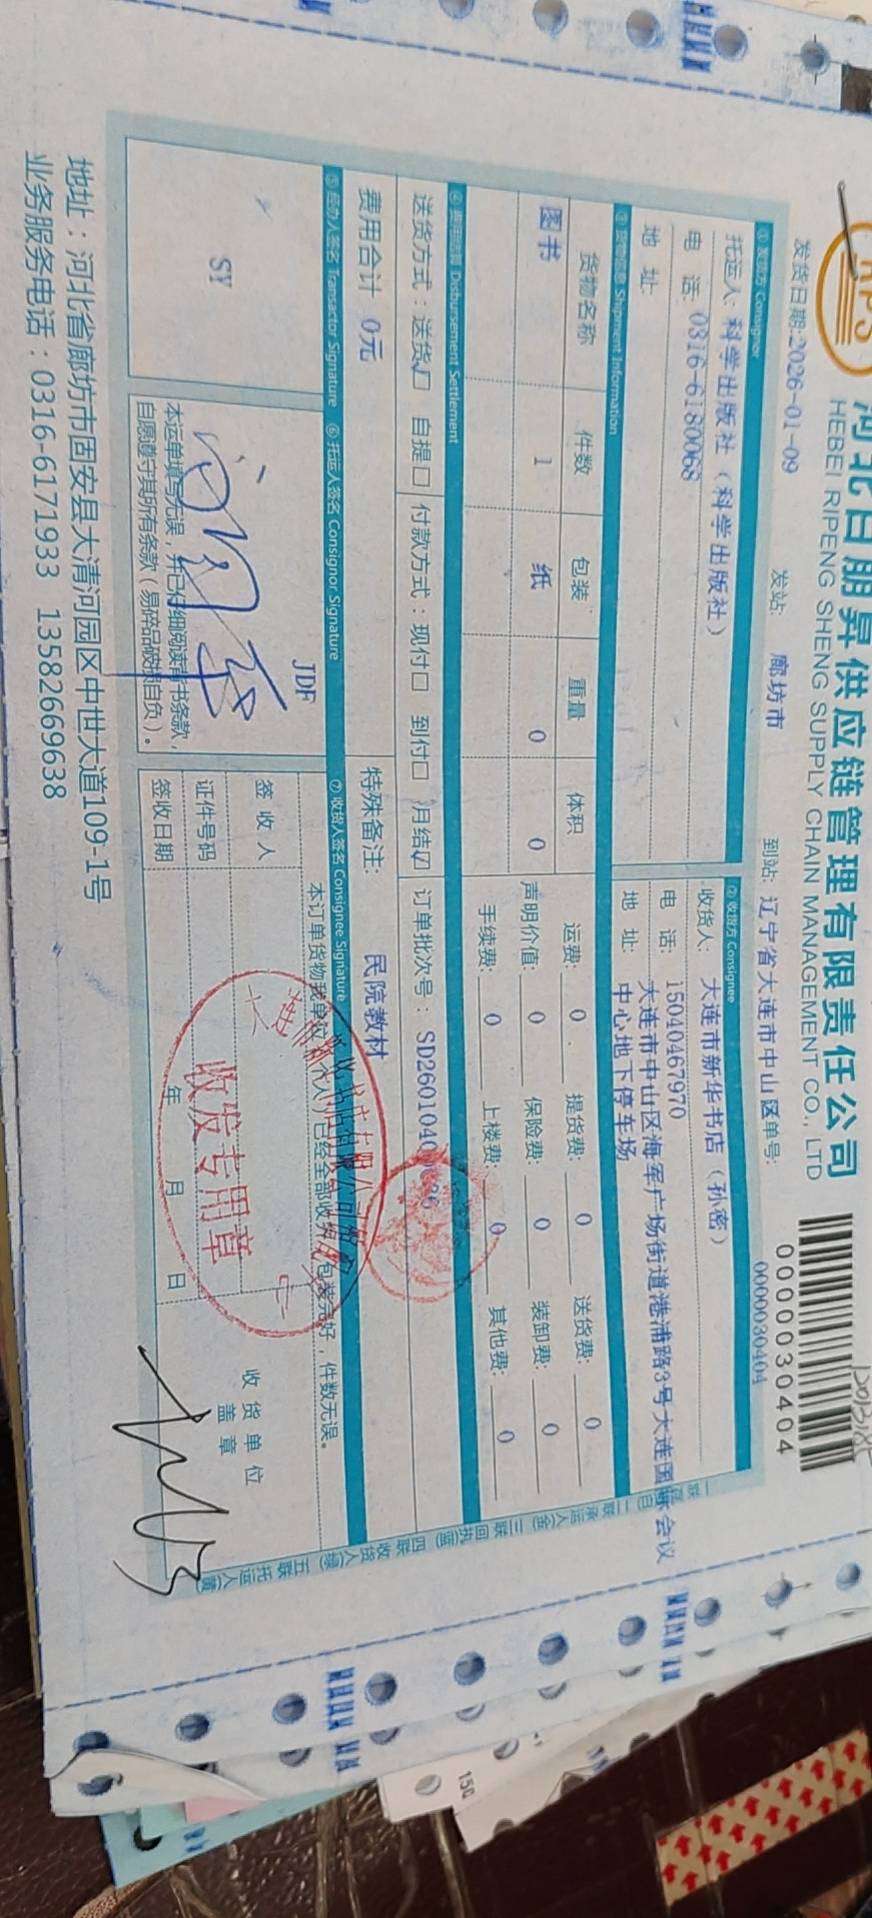 河北日朋昇供应链管理有限责任公司
HEBEI RIPENG SHENG SUPPLY CHAIN MANAGEMENT CO., LTD
0000030404
发货日期:2026-01-09 发站: 廊坊市 到站: 辽宁省大连市中山区 单号: 0000030404
① 发货方 Consignor
托运人: 科学出版社（科学出版社）
电 话: 0316-6180068
地 址:
② 收货方 Consignee
收货人: 大连市新华书店（孙密）
电 话: 15040467970
地 址: 大连市中山区海军广场街道港浦路3号大连国际会议
中心地下停车场
③ 货物信息 Shipment Information
货物名称 件数 包装 重量 体积
图书 1 纸 0 0
运费: 0 提货费: 0 送货费: 0
声明价值: 0 保险费: 0 装卸费: 0
手续费: 0 上楼费: 0 其他费: 0
④ 费用结算 Disbursement Settlement
送货方式：送货☑ 自提□ 付款方式：现付□ 到付□ 月结☑ 订单批次号：
费用合计 0元 特殊备注: 民院教材
⑤ 经办人签名 Transactor Signature ⑥ 托运人签名 Consignor Signature ⑦ 收货人签名 Consignee Signature
SY
JDF
本运单填写无误，并已仔细阅读背书条款，
自愿遵守其所有条款（易碎品破损自负）。
本订单货物我单位（个人）已经全部收货，包装完好，件数无误。
签 收 人
证件号码
签收日期 年 月 日
收 货 单 位
盖 章
收发专用章
地址：河北省廊坊市固安县大清河园区中世大道109-1号
业务服务电话：0316-6171933 13582669638